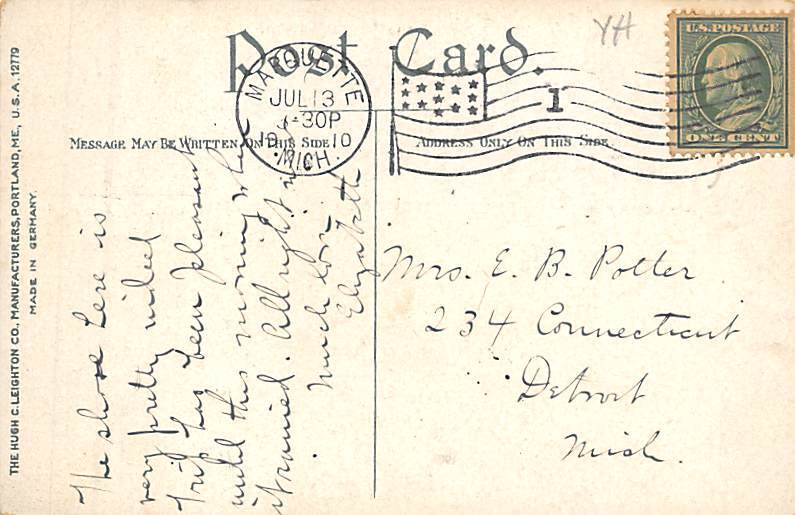 Post Card.
YH
U.S.POSTAGE
ONE CENT
MARQUETTE
JUL 13
30P
1910
MICH.
1
MESSAGE MAY BE WRITTEN ON THIS SIDE
ADDRESS ONLY ON THIS SIDE
THE HUGH C. LEIGHTON CO. MANUFACTURERS, PORTLAND, ME., U.S.A. 12779
MADE IN GERMANY.
The shore here is
very pretty indeed
Trip has been pleasant
until this morning when
it rained. All right now
Much love
Elizabeth
Mrs. E. B. Potter
234 Connecticut
Detroit
Mich.